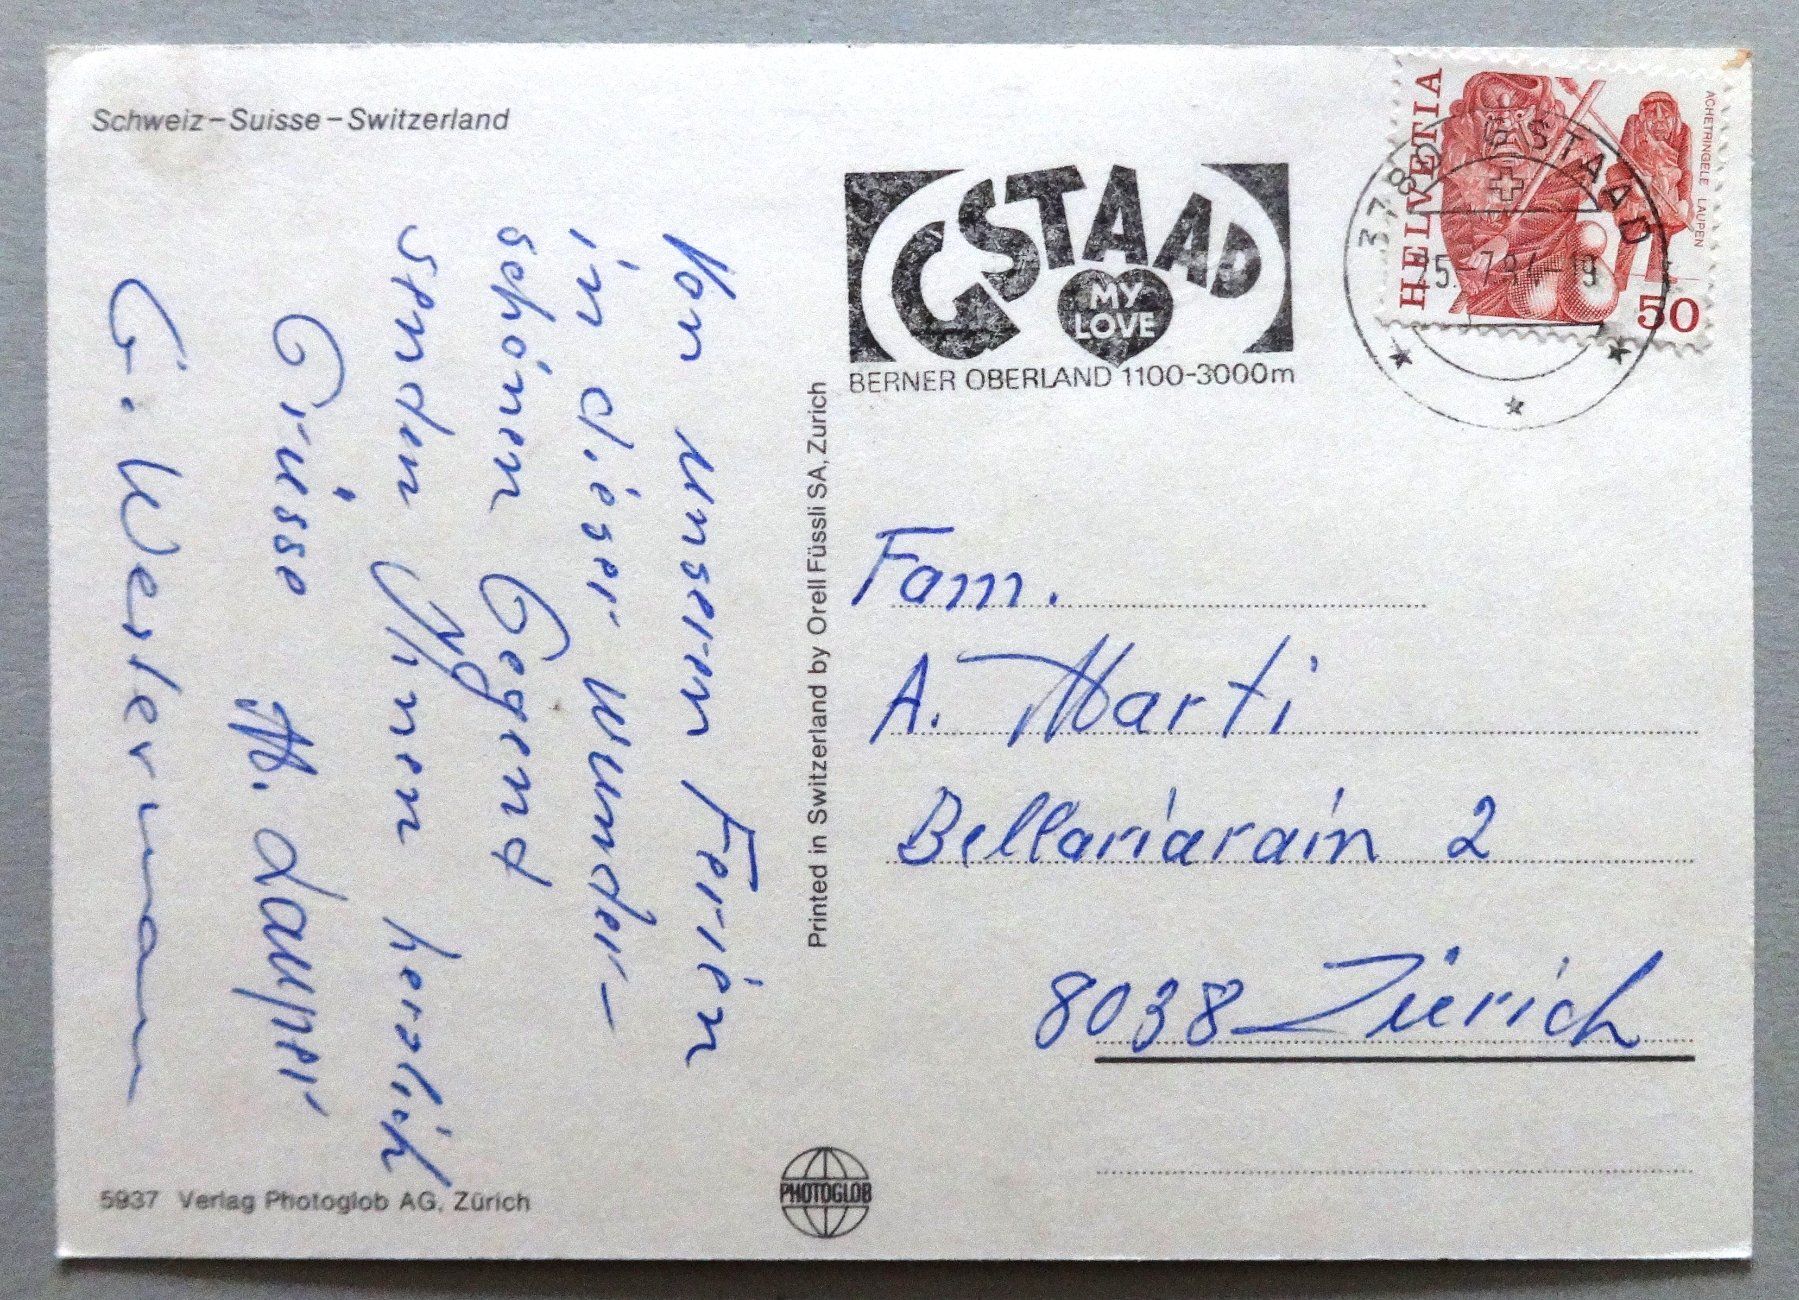 Schweiz–Suisse–Switzerland
Von unseren Ferien
in dieser wunder-
schönen Gegend
senden Ihnen herzlich
Grüsse M. Lauper
G. Westermann
5937 Verlag Photoglob AG, Zürich
Printed in Switzerland by Orell Füssli SA, Zurich
PHOTOGLOB
GSTAAD
MY
LOVE
BERNER OBERLAND 1100-3000m
HELVETIA
ACHETRINGELE LAUPEN
50
3780 GSTAAD
Fam.
A. Marti
Bellariarain 2
8038 Zürich